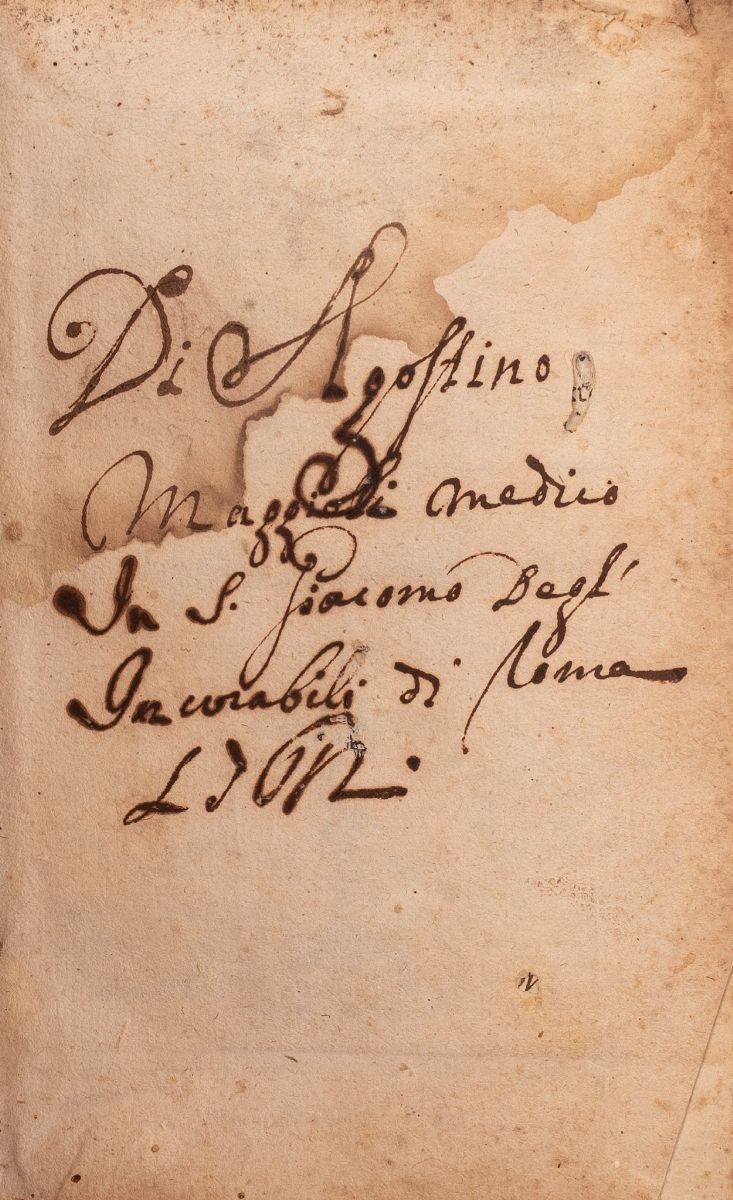 Di Agostino
Maggioli medico
In S. Giacomo Degl'
Incurabili di Roma